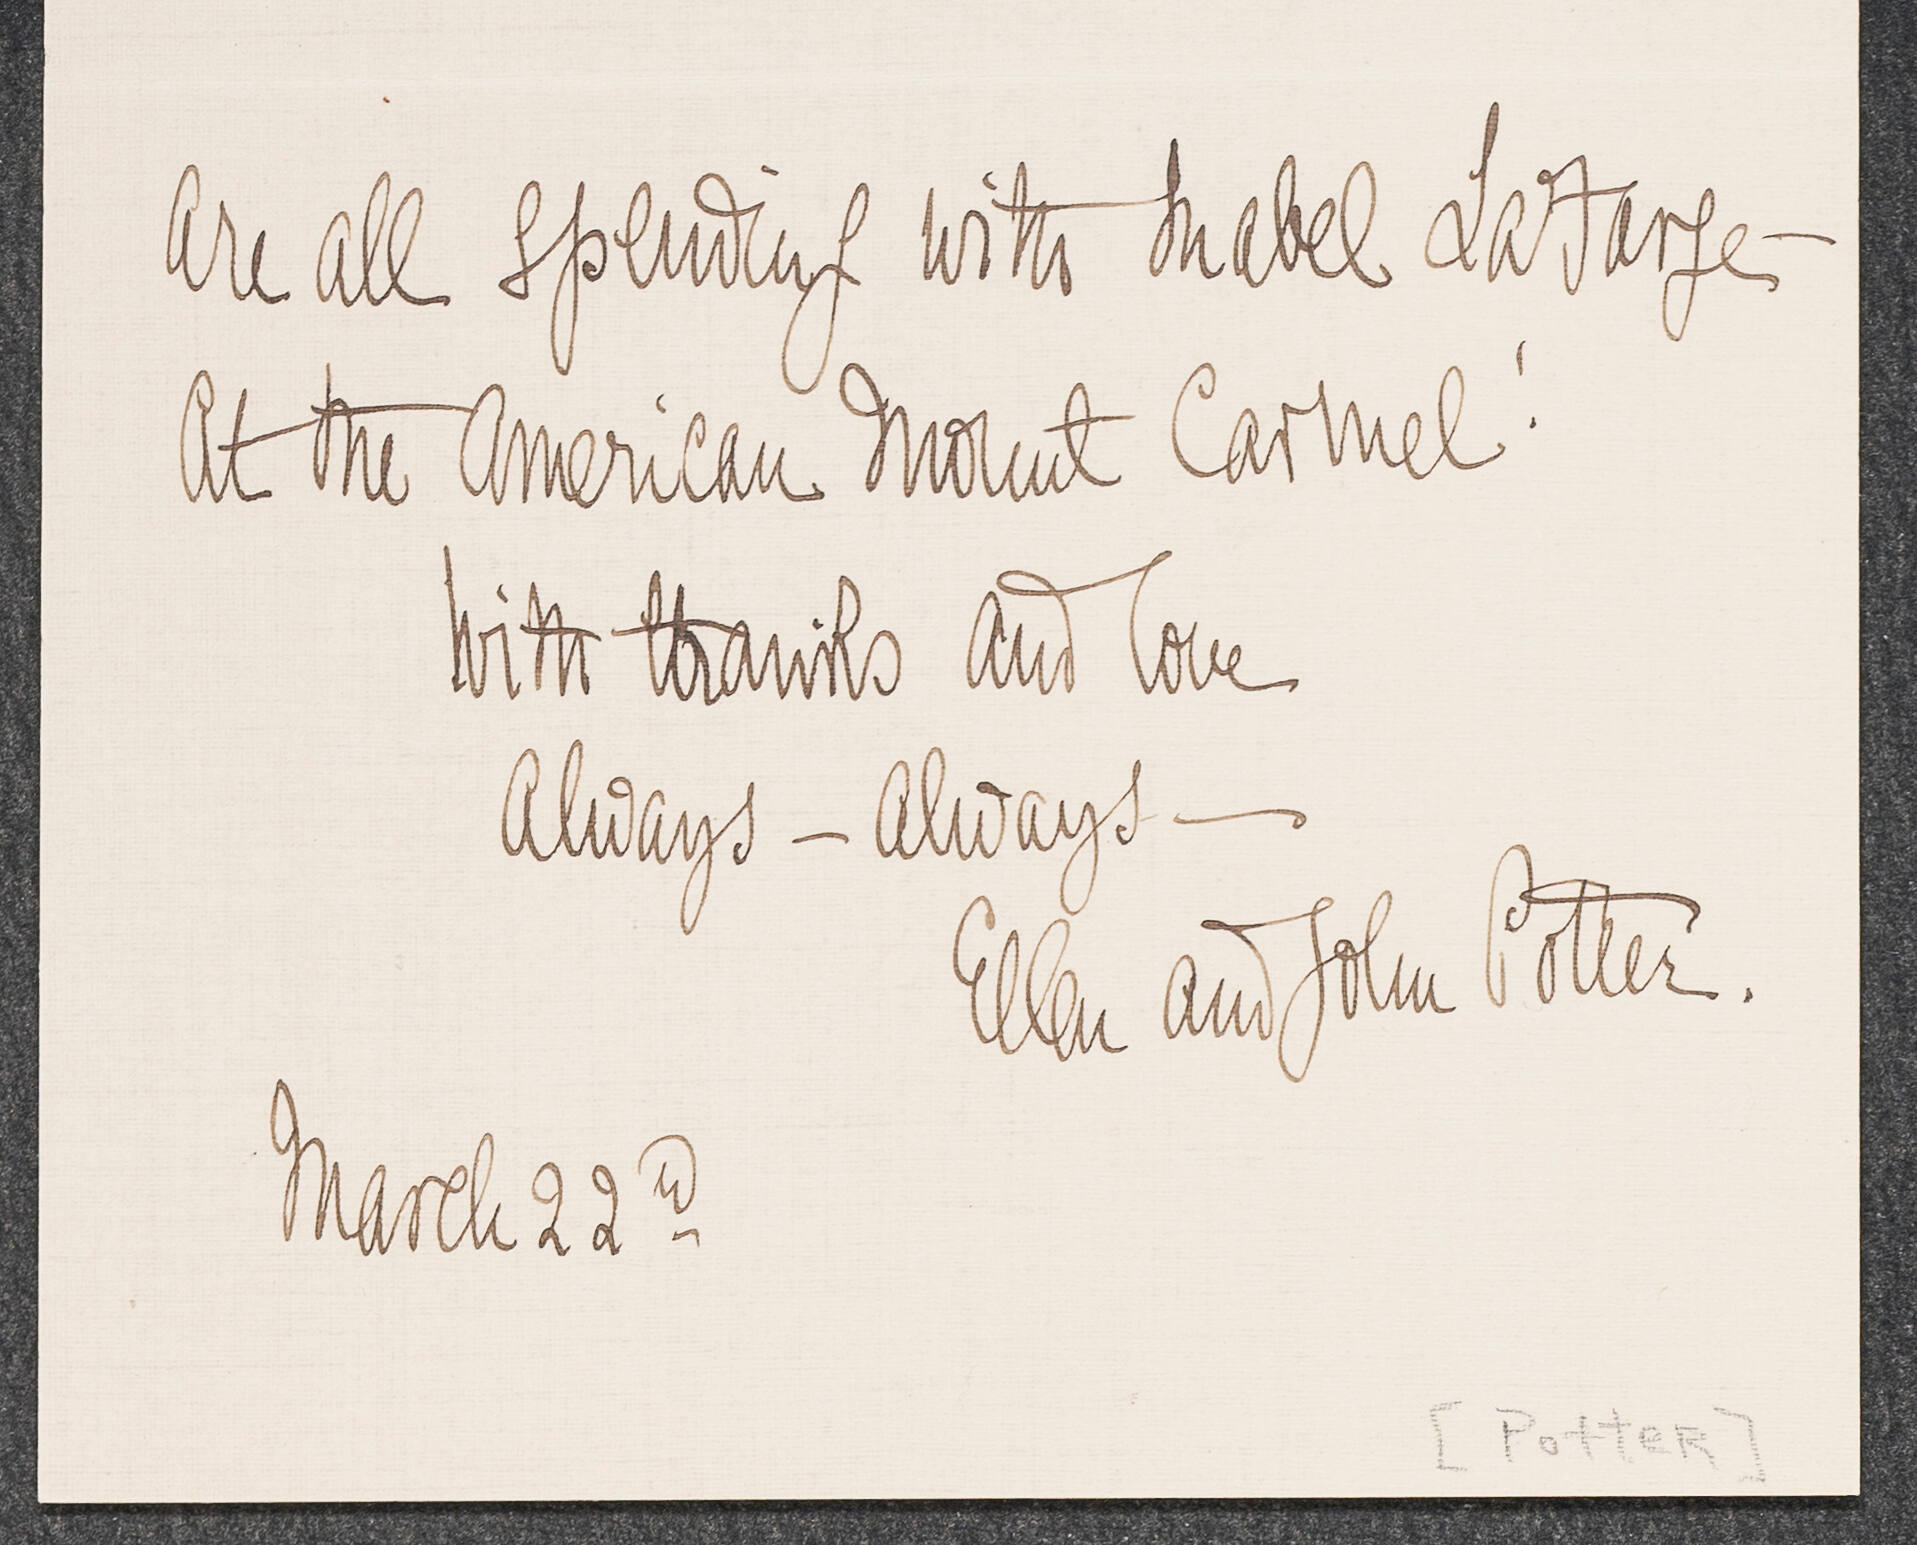 are all spending with Mabel LaFarge —
at the American Mount Carmel!
With thanks and love
Always — always —
Ellen and John Potter.
March 22nd
[Potter]